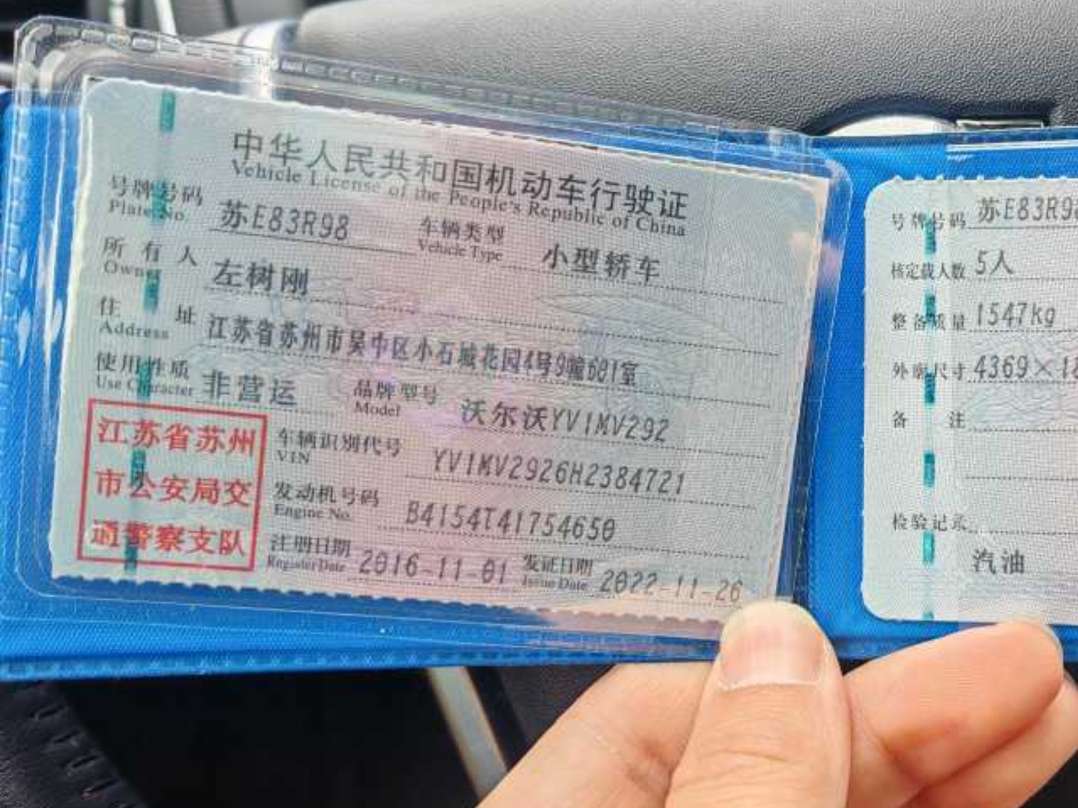 中华人民共和国机动车行驶证
Vehicle License of the People's Republic of China
号牌号码 苏E83R98 车辆类型 小型轿车
Plate No. Vehicle Type
所有人 左树刚
Owner
住址 江苏省苏州市吴中区小石城花园4号9幢601室
Address
使用性质 非营运 品牌型号 沃尔沃YV1MV292
Use Character Model
江苏省苏州
市公安局交
通警察支队
车辆识别代号 YV1MV2926H2384721
VIN
发动机号码 B4154T41754650
Engine No.
注册日期 2016-11-01 发证日期 2022-11-26
Register Date Issue Date
号牌号码 苏E83R9
核定载人数 5人
整备质量 1547kg
外廓尺寸 4369×18
备注
检验记录
汽油